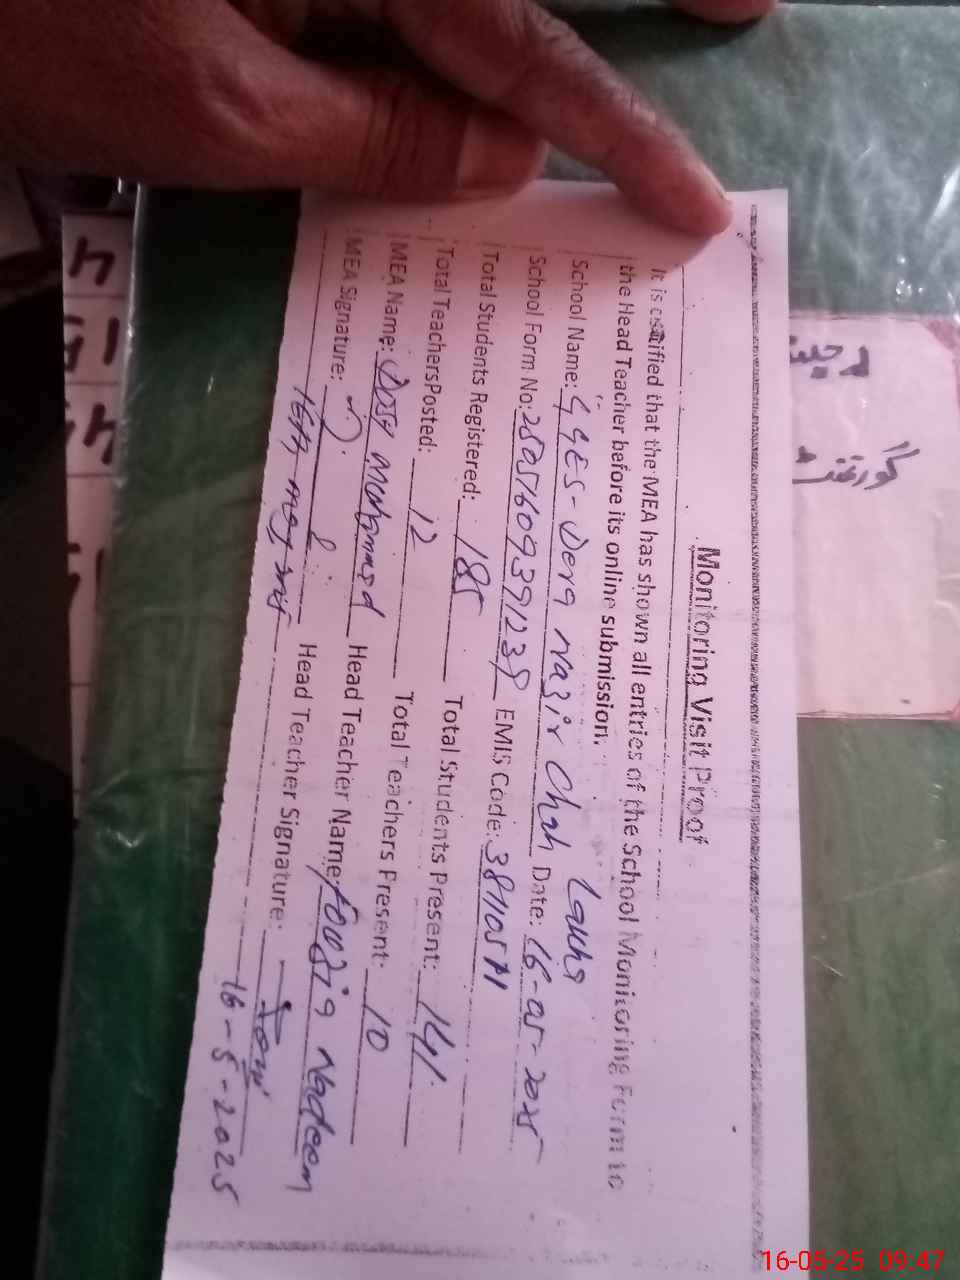 Monitoring Visit Proof
It is certified that the MEA has shown all entries of the School Monitoring Form to
the Head Teacher before its online submission.
School Name: GGES- Dera Nazir Chah Lakha
School Form No: Date: 16-05-2025
Total Students Registered: 185 EMIS Code: 38110571
Total Teachers Posted: 12 Total Students Present: 141
MEA Name: Dost Mohammad Total Teachers Present: 10
MEA Signature: Head Teacher Name: Fouzia Nadeem
16th may Head Teacher Signature:
16-5-2025
گورنمنٹ
16-05-25 09:47